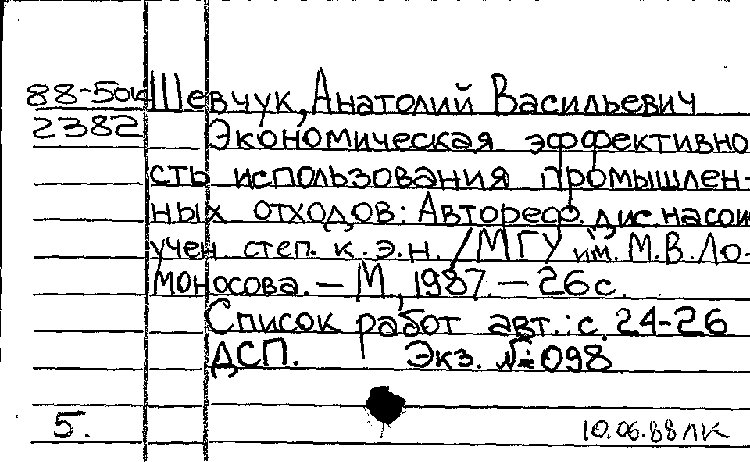 88-50к Шевчук, Анатолий Васильевич
2382 Экономическая эффективно
сть использования промышлен-
ных отходов: Автореф. дис. на сои
учен. степ. к.э.н. /МГУ им. М.В. Ло-
моносова. – М., 1987. – 26 с.
Список работ авт.: с. 24-26
ДСП. Экз. № 098
5. 10.06.88 ЛК